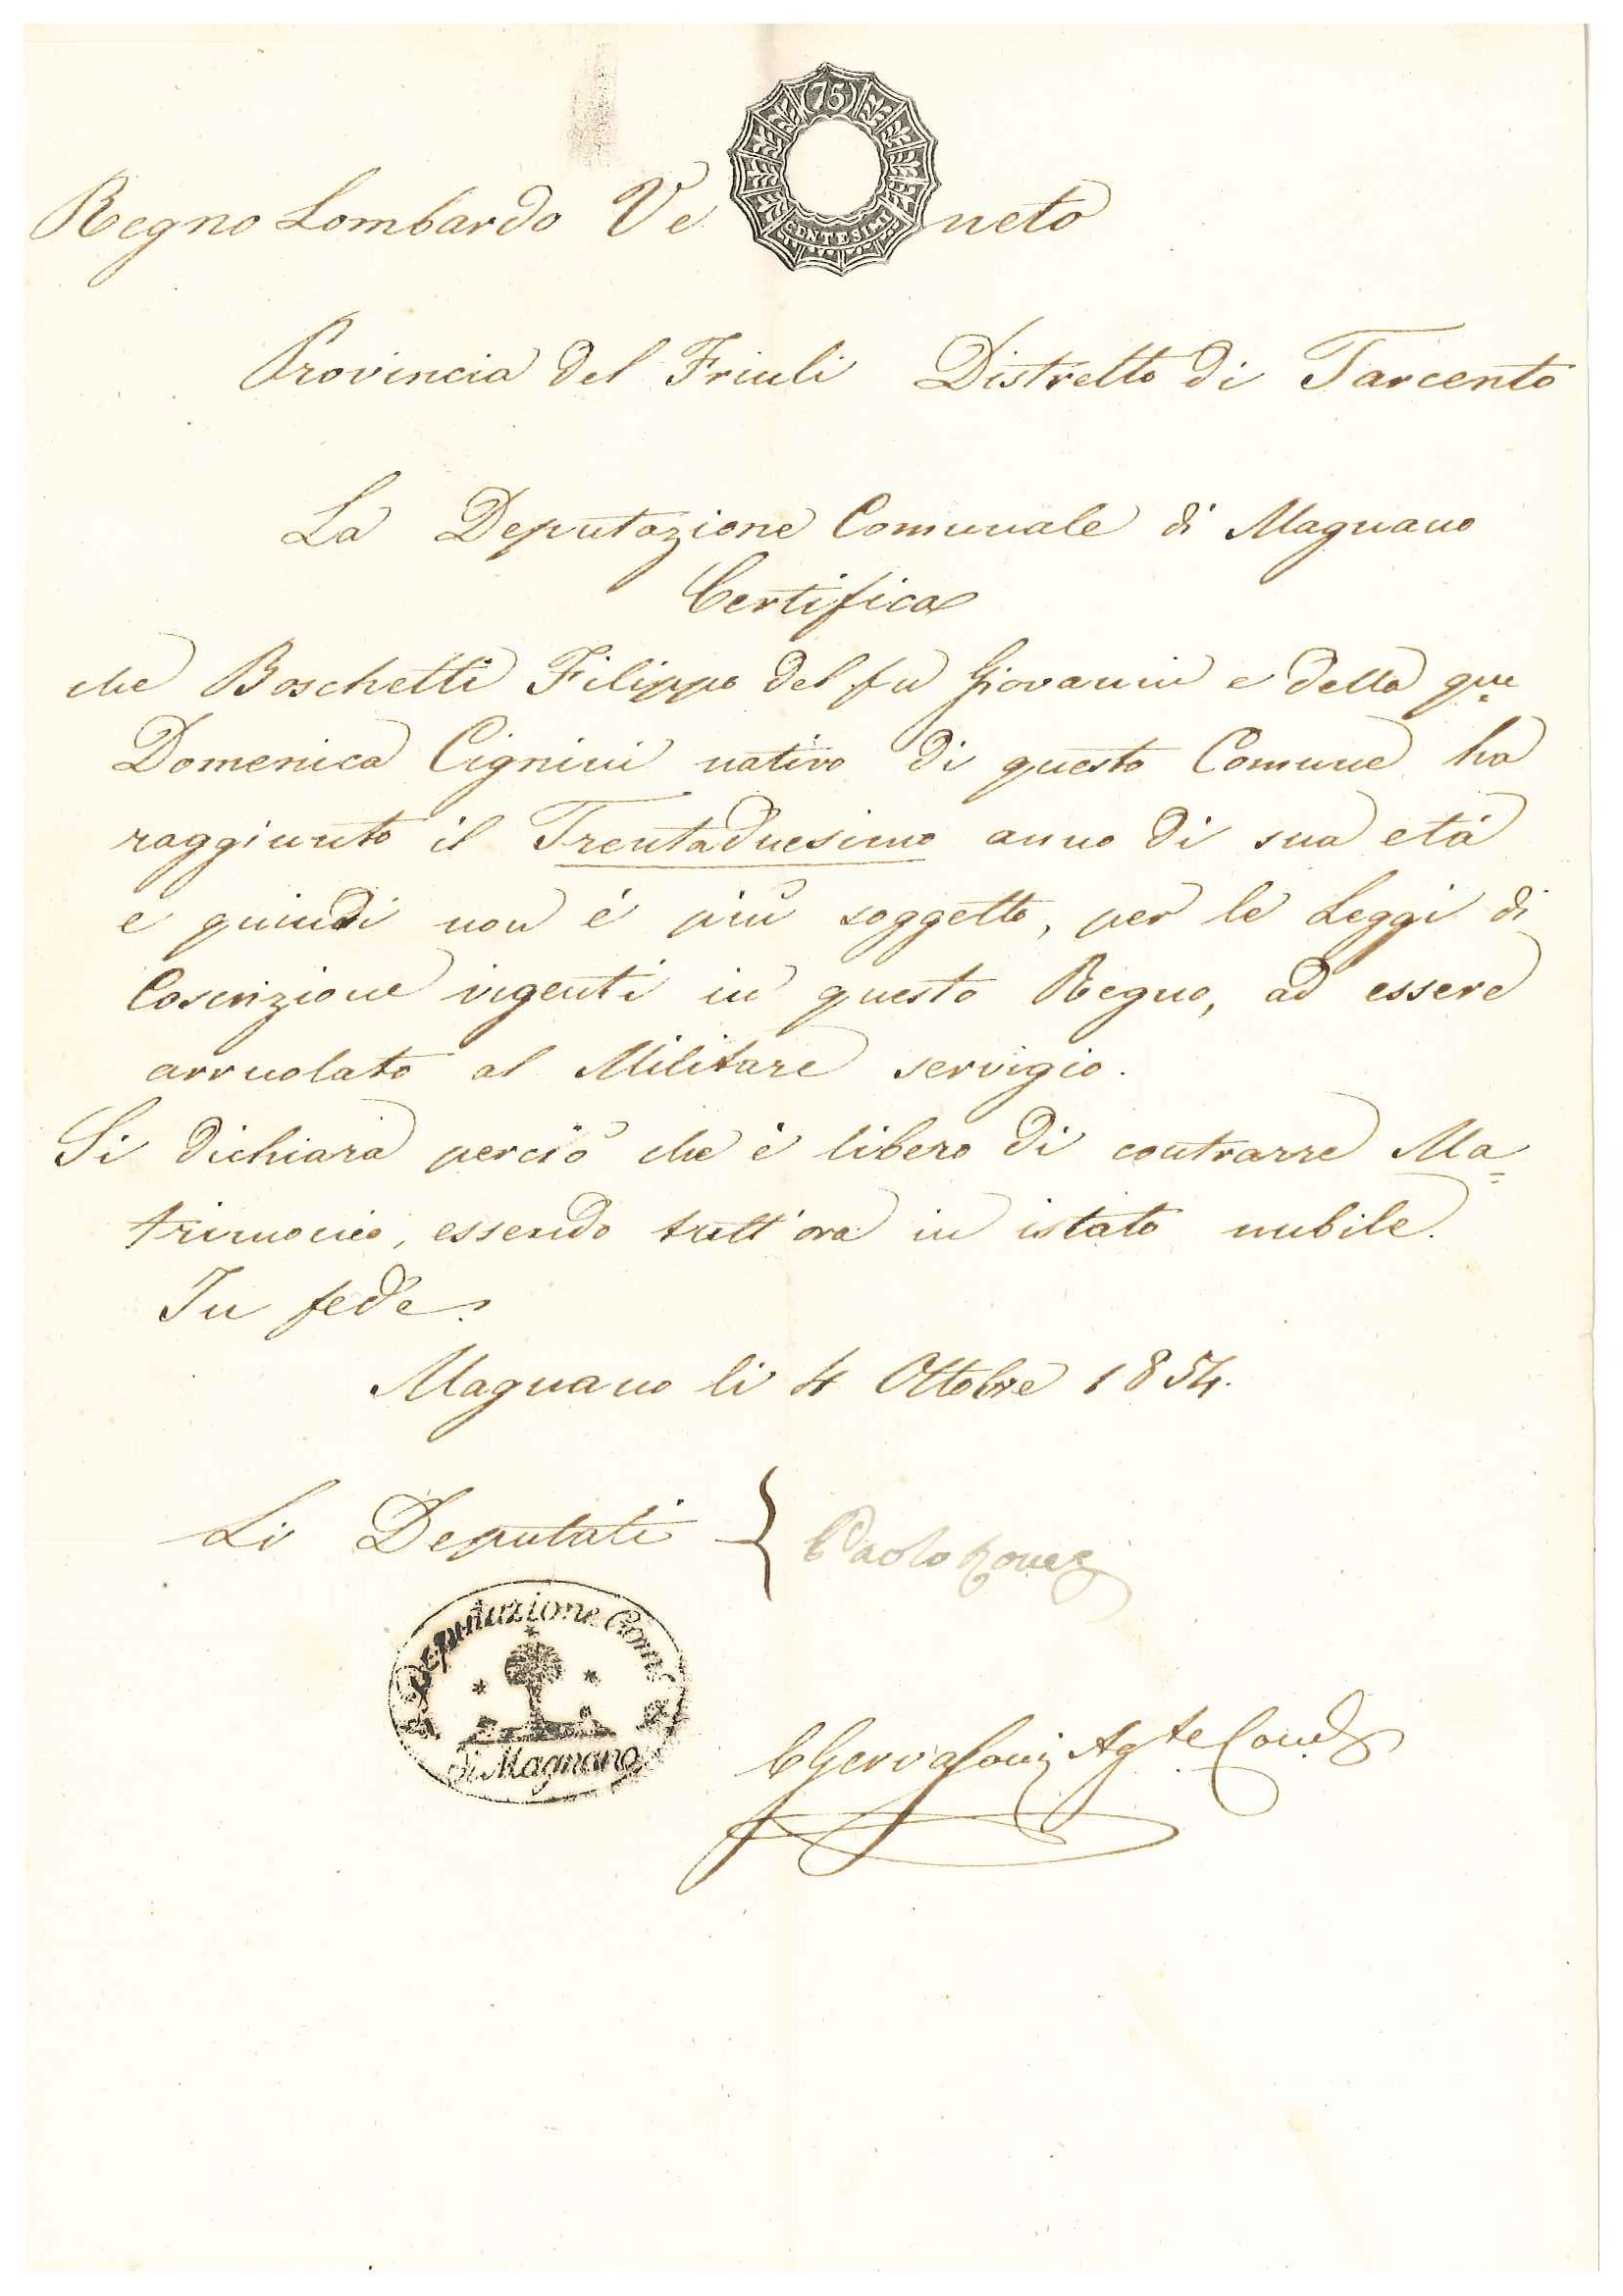 75
CENTESIMI
Regno Lombardo Veneto
Provincia del Friuli Distretto di Tarcento
La Deputazione Comunale di Magnano
Certifica
che Boschetti Filippo del fu Giovanni e della que
Domenica Cignini nativo di questo Comune ha
raggiunto il Trentaduesimo anno di sua età
e quindi non è più soggetto, per le Leggi di
Coscrizione vigenti in questo Regno, ad essere
arruolato al Militare servigio.
Si dichiara perciò che è libero di contrarre Ma=
trimonio, essendo tutt'ora in istato nubile.
In fede.
Magnano li 4 Ottobre 1854.
Li Deputati } Paolo
Deputazione Com.
di Magnano
Gervasoni Agte Com